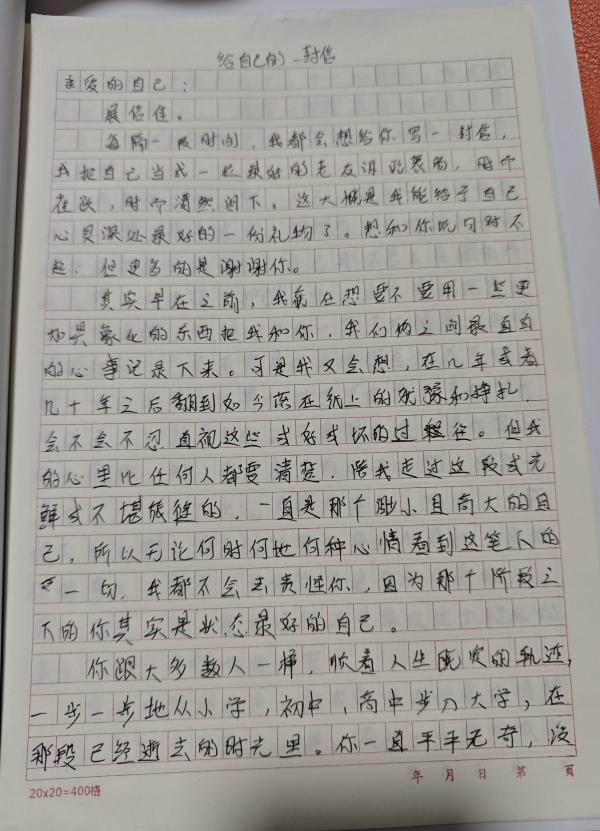 给自己的一封信
亲爱的自己：
展信佳。
每隔一段时间，我都会想给你写一封信，
我把自己当成一位最好的老友诉说衷肠，时而
在跃，时而潸然泪下。这大概是我能给予自己
心灵深处最好的一份礼物了。想和你说句对不
起，但更多的是谢谢你。
其实早在之前，我就在想要不要用一些更
加具象化的东西把我和你，我们俩之间最真真
的心事记录下来。可是我又会想，在几年或者
几十年之后翻到如今落在纸上的犹豫和挣扎，
会不会不忍直视这些或好或坏的过往。但我
的心里比任何人都要清楚，陪我走过这段或光
鲜或不堪旅途的，一直是那个胆小且高大的自
己，所以无论何时何地何种心情看到这笔下的
每一句，我都不会去责怪你，因为那个阶段之
下的你其实是状态最好的自己。
你跟大多数人一样，顺着人生既定的轨迹，
一步一步地从小学，初中，高中步入大学，在
那段已经逝去的时光里。你一直平平无奇，没
年 月 日 第 页
20x20=400格